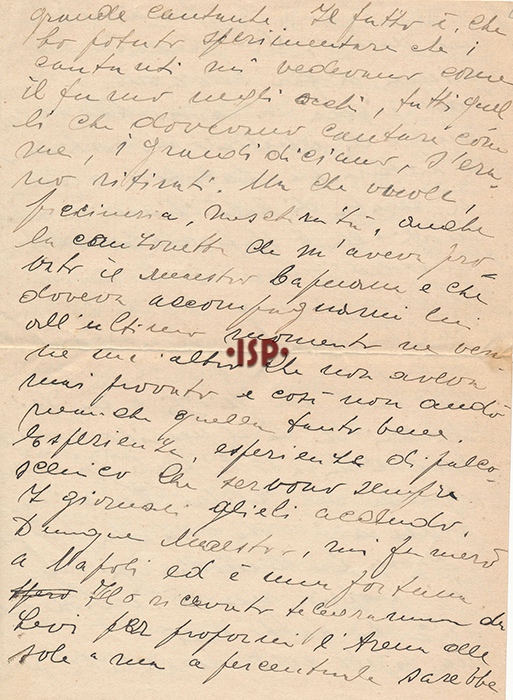 grande cantante. Il fatto è, che
ho potuto sperimentare che i
cantanti mi vedevano come
il fumo negli occhi, tutti quel
li che dovevano cantare con
me, i grandi diciamo, s'era-
no ritirati. Ma che vuole,
piccineria, meschinità, anche
la canzonetta che m'aveva pro-
vato il Maestro Capuana e che
doveva accompagnarmi lui
all'ultimo momento ne ven-
ne un altro che non aveva
mai provato e così non andò
neanche quella tanto bene.
Esperienze, esperienze di palco-
scenico che servono sempre.
I giornali glieli accludo.
Dunque Maestro, mi fermerò
a Napoli ed è una fortuna.
Ho ricevuto telegramma da
Levi per propormi l'Arena alle
sole a percentuale sarebbe
·ISP·